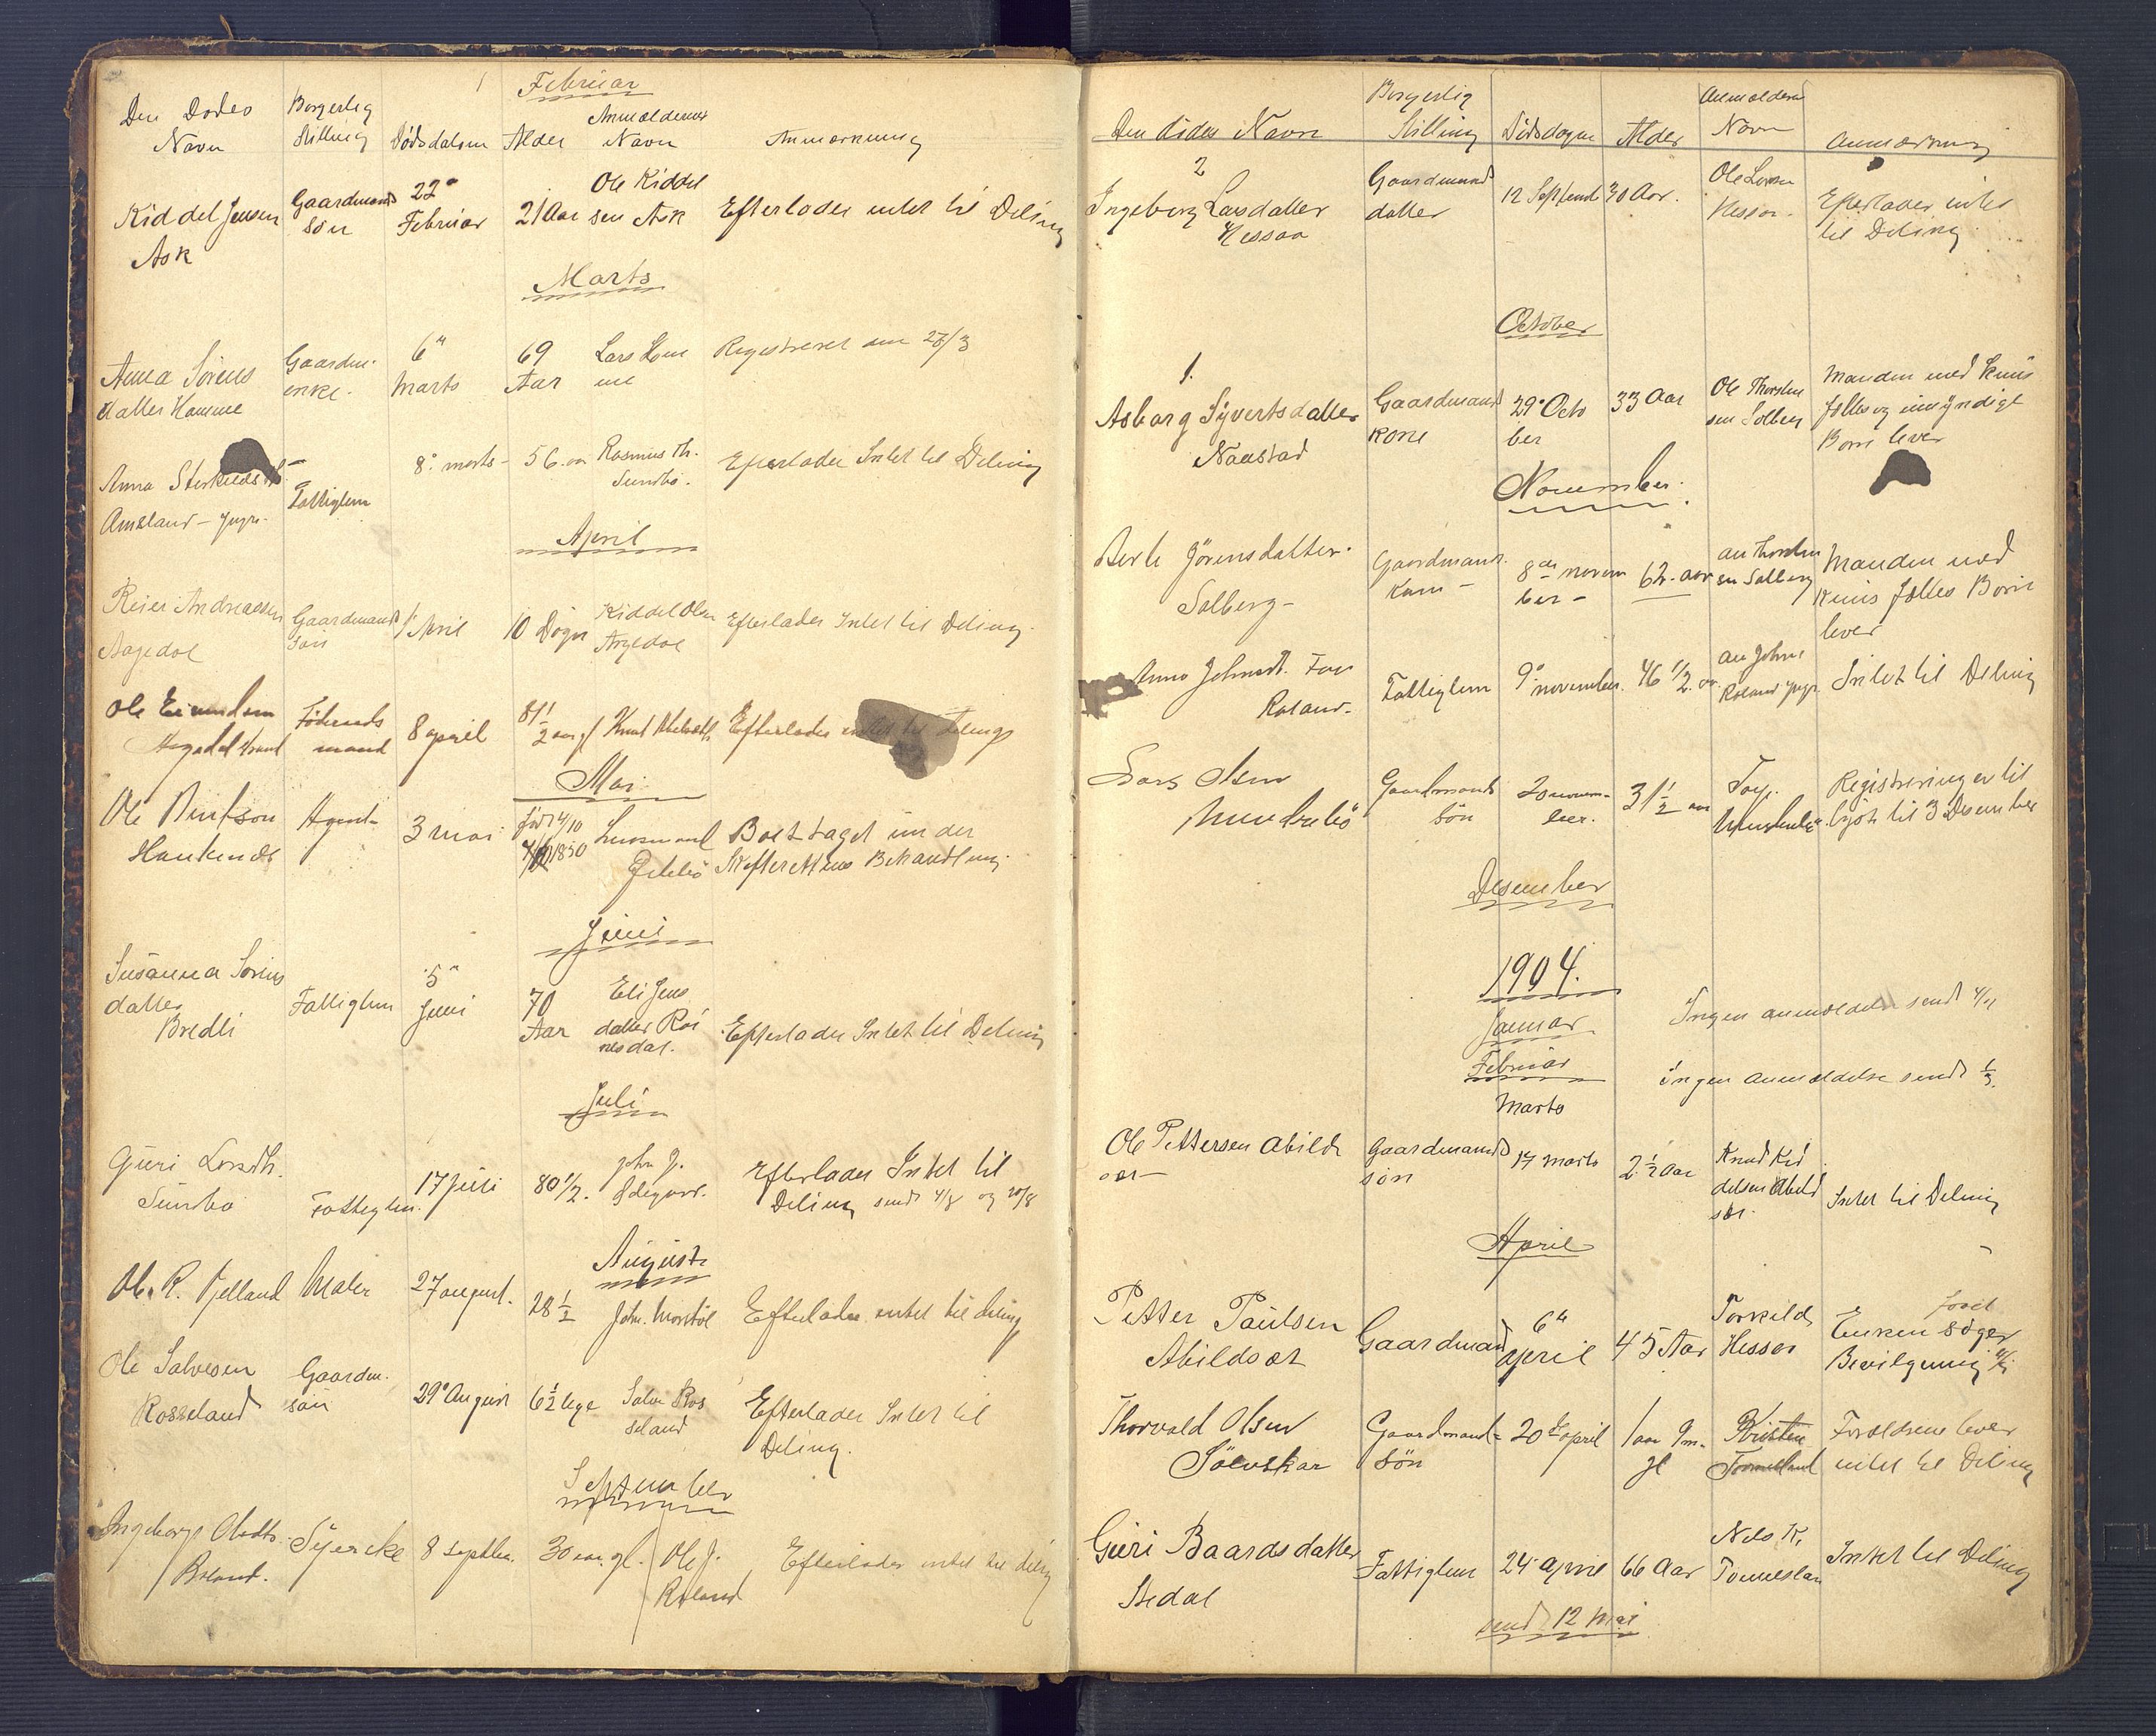 Februar
Den Dødes Navn
Borgerlig Stilling
Dødsdatum
Alder
Anmelderens Navn
Anmerkning
Kiddel Jensen Ask
Gaardmands søn
22de Februar
21 Aar
Ole Kiddelsen Ask
Efterlader intet til Deling
Marts
Anna Sørensdatter Homme
Gaardm. enke.
6" Marts
69 Aar
Lars Homme
Registreret den 28/3
Anna
Amsland
Fattiglem
8de marts
56 aar
Rasmus Th. Sundbø.
Efterlader Intet til Deling
April
Reier Andreassen Aagedal
Gaardmands søn
1" April
10 Døgn
Kiddel Olsen Aagedal
Efterlader Intet til Deling.
Ole
mand
8 april
81 1/2 aar gl
Knut
Efterlader intet til Deling
Mai
Ole
Agent
3 mai
født 4/10 1850
Lensmand
Boet taget under Skifterettens Behandling.
Juni
Susanna Sørensdatter Bredli
Fattiglem
5" Juni
70 Aar
Eli Jensdatter Roinesdal.
Efterlader Intet til Deling
Juli
Guri Larsdtr. Sundbø
Fattiglem.
17 juli
80 1/2.
John J.
Efterlader Intet til Deling sendt 4/8 og 20/8
August
Ole R. Fjelland
Maler
27 august.
28 1/2
John
Efterlader intet til deling
Ole Salvesen Rosseland
Gaardm. søn
29de August
6 1/2 uge
Salve Rosseland
Efterlader Intet til Deling.
September
Ingeborg Olsdtr. Roland.
Syerske
8 septbr.
30 aar gl.
Ole J. Roland
Efterlader intet til deling
Den dødes Navn
Borgerlig Stilling
Dødsdagen
Alder
Anmelderens Navn
Anmærkning
2
Ingeborg Larsdatter Hessaa
Gaardmands datter
12 Septemb
30 Aar.
Ole Larsen Hessaa.
Efterlader intet til Deling
October
1.
Asborg Syvertsdatter Naustad
Gaardmands kone
29de October
33 Aar
Ole Thorsen Solberg
Manden med kuns fælles og umyndige Børn lever
November.
Berte Jørensdatter. Solberg
Gaardmands Kone
8de november
62 aar
Manden med kuns fælles Børn lever
Anna Johnsdt. Roland
Fattiglem
9de november.
46 1/2 aar
Intet til Deling
Lars Olsen
Gaardmands søn
20 november.
31 1/2 aar
Registrering er tilbydt til 3 Desember
Desember
1904.
Januar
Ingen anmeldelse sendt
Februar
Ingen anmeldelse sendt 1/3
Marts
Ole Pettersen Abildsæt
Gaardmands søn
17 marts
2 1/2 Aar
Knud Kiddelsen Abildsæt.
Intet til Deling
April
Petter Paulsen Abildsæt
Gaardmand
6" april
45 Aar
Torkild Hessaa
Enken søger Bevilgning
Thorvald Olsen
Gaardmands søn
20de april
1 aar 9 m. gl
Forældrene lever intet til Deling
Guri Baardsdatter Stedal
Fattiglem
24de april
66 Aar
Nils K. Tommeslan
Intet til Deling
sendt 12 Mai